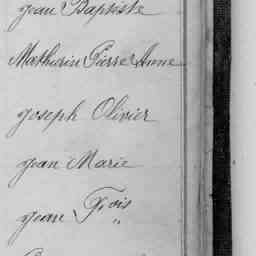 Jean Baptiste
Mathurin Pierre Anne
Joseph Olivier
Jean Marie
Jean Fois
"